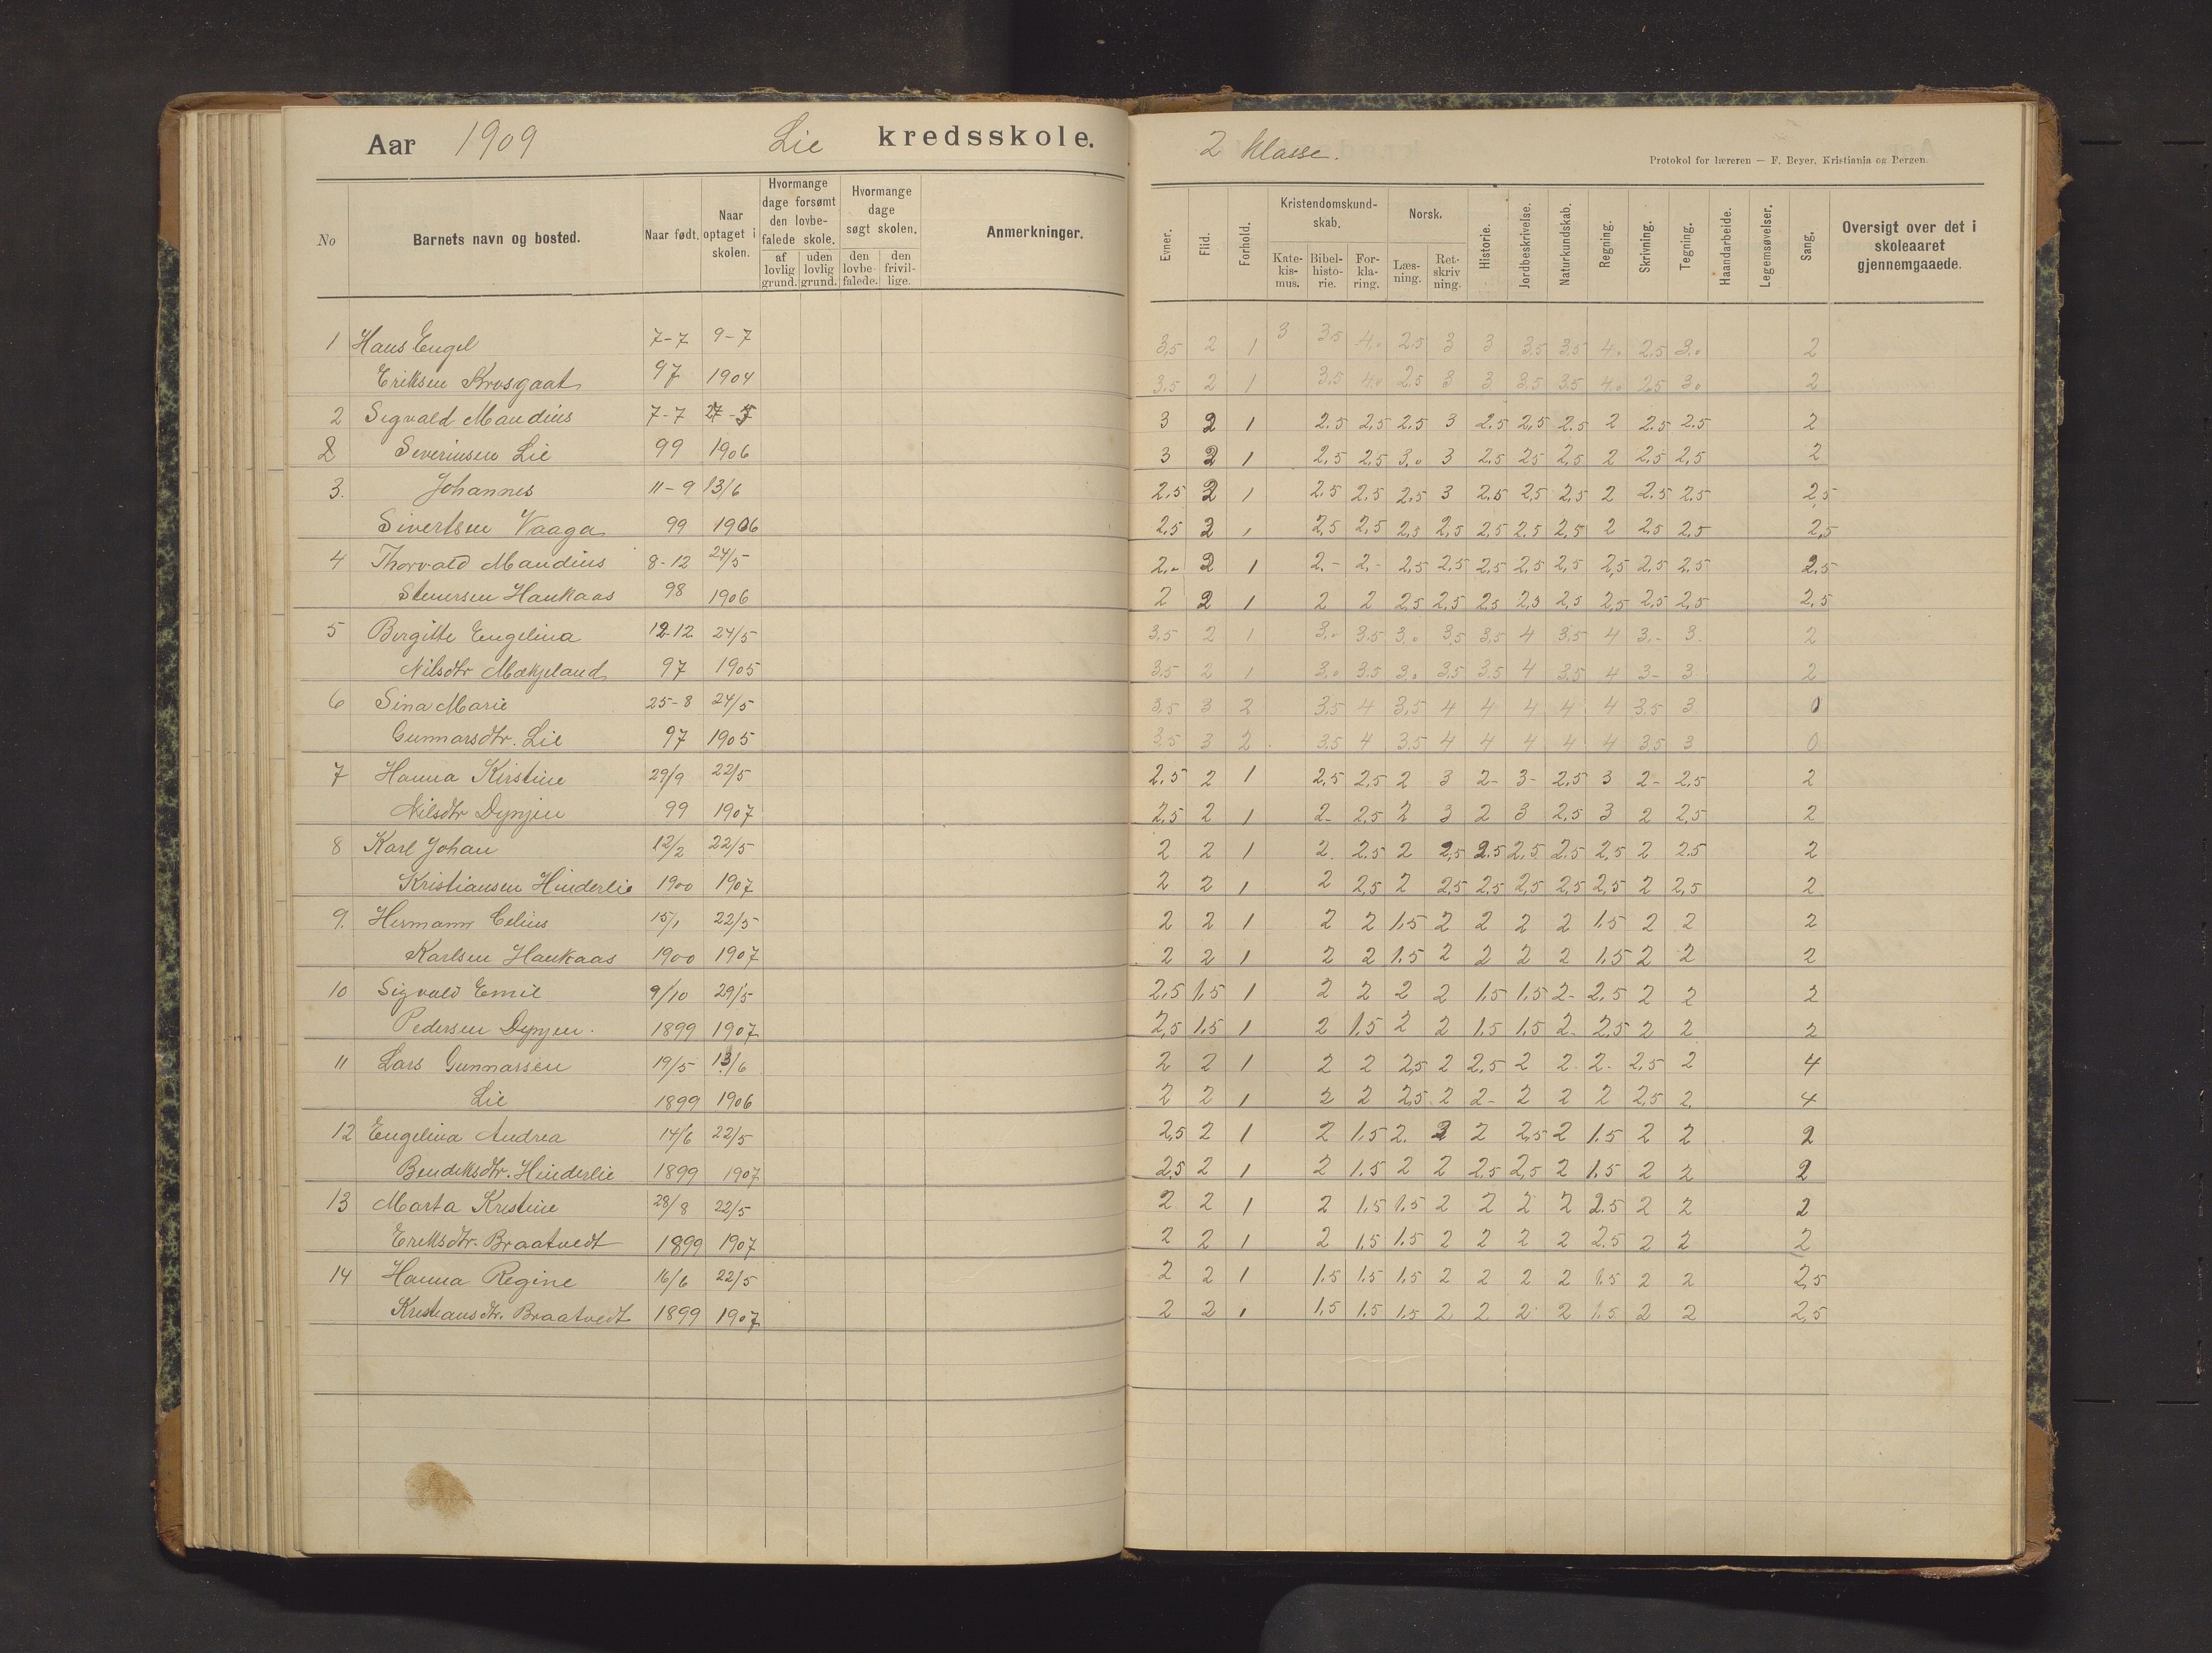 Aar 1909 Lie kredsskole.
No Barnets navn og bosted. Naar født. Naar optaget i skolen. Hvormange dage forsømt den lovbefalede skole. af lovlig grund. uden lovlig grund. Hvormange dage søgt skolen. den lovbefalede. den frivillige. Anmerkninger.
1 Hans Engel 7-7 9-7
Eriksen Krosgaat 97 1904
2 Sigvald Maudius 7-7 27-5
2 Severinsen Lie 99 1906
3. Johannes 11-9 13/6
Sivertsen Vaaga 99 1906
4 Thorvald Maudius 8-12 24/5
Stenersen Haukaas 98 1906
5 Birgitte Engelina 12-12 24/5
Nilsdtr Mækjeland 97 1905
6 Sina Marie 25-8 24/5
Gunnarsdtr. Lie 97 1905
7 Hanna Kirstine 29/9 22/5
Nilsdtr Dypjen 99 1907
8 Karl Johan 12/2 22/5
Kristiansen Hinderlie 1900 1907
9. Hermann Celius 15/1 22/5
Karlsen Haukaas 1900 1907
10 Sigvald Emil 9/10 29/5
Pedersen Dypjen. 1899 1907
11 Lars Gunnarsen 19/5 13/6
Lie 1899 1906
12 Engelina Andrea 14/6 22/5
Bendiksdtr. Hinderlie 1899 1907
13 Marta Kristine 28/8 22/5
Eriksdtr. Braatvedt 1899 1907
14 Hanna Regine 16/6 22/5
Kristiansdtr. Braatvedt 1899 1907
2 klasse.
Protokol for læreren — F. Beyer, Kristiania og Bergen.
Evner. Flid. Forhold. Kristendomskundskab. Katekismus. Bibelhistorie. Forklaring. Norsk. Læsning. Retskrivning. Historie. Jordbeskrivelse. Naturkundskab. Regning. Skrivning. Tegning. Haandarbeide. Legemsøvelser. Sang. Oversigt over det i skoleaaret gjennemgaaede.
3,5 2 1 3 3,5 4,0 2,5 3 3 3,5 3,5 4,0 2,5 3,0 2
3,5 2 1 3,5 4,0 2,5 3 3 3,5 3,5 4,0 2,5 3,0 2
3 2 1 2,5 2,5 2,5 3 2,5 2,5 2,5 2 2,5 2,5 2
3 2 1 2,5 2,5 3,0 3 2,5 2,5 2,5 2 2,5 2,5 2
2,5 2 1 2,5 2,5 2,5 3 2,5 2,5 2,5 2 2,5 2,5 2,5
2,5 2 1 2,5 2,5 2,5 2,5 2,5 2,5 2,5 2 2,5 2,5 2,5
2,- 2 1 2,- 2,- 2,5 2,5 2,5 2,5 2,5 2,5 2,5 2,5 2,5
2 2 1 2 2 2,5 2,5 2,5 2,5 2,5 2,5 2,5 2,5 2,5
3,5 2 1 3,0 3,5 3,0 3,5 3,5 4 3,5 4 3,- 3. 2
3,5 2 1 3,0 3,5 3,0 3,5 3,5 4 3,5 4 3- 3 2
3,5 3 2 3,5 4 3,5 4 4 4 4 4 3,5 3 0
3,5 3 2 3,5 4 3,5 4 4 4 4 4 3,5 3 0
2,5 2 1 2,5 2,5 2 3 2- 3- 2,5 3 2- 2,5 2
2,5 2 1 2- 2,5 2 3 2 3 2,5 3 2 2,5 2
2 2 1 2. 2,5 2 2,5 2,5 2,5 2,5 2,5 2 2,5 2
2 2 1 2 2,5 2 2,5 2,5 2,5 2,5 2,5 2 2,5 2
2 2 1 2 2 1,5 2 2 2 2 1,5 2 2 2
2 2 1 2 2 1,5 2 2 2 2 1,5 2 2 2
2,5 1,5 1 2 2 2 2 1,5 1,5 2- 2,5 2 2 2
2,5 1,5 1 2 1,5 2 2 1,5 1,5 2- 2,5 2 2 2
2 2 1 2 2 2,5 2 2,5 2 2 2- 2,5 2 4
2 2 1 2 2 2,5 2 2- 2 2 2 2,5 2. 4
2,5 2 1 2 1,5 2. 2 2 2,5 2 1,5 2 2 2
2,5 2 1 2 1,5 2 2 2,5 2,5 2 1,5 2 2 2
2 2 1 2 1,5 1,5 2 2 2 2 2,5 2 2 2
2 2 1 2 1,5 1,5 2 2 2 2 2,5 2 2 2
2 2 1 1,5 1,5 1,5 2 2 2 2 1,5 2 2 2,5
2 2 1 1,5 1,5 1,5 2 2 2 2 1,5 2 2 2,5